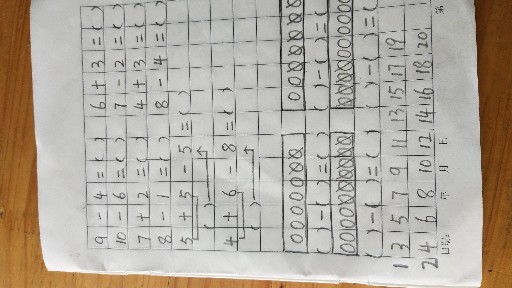 9 - 4 =( ) 6 + 3 =( )
10 - 6 =( ) 7 - 2 =( )
7 + 2 =( ) 4 + 3 =( )
8 - 1 =( ) 8 - 4 =( )
5 + 5 - 5 =( )
( )
4 + 6 - 8 =( )
( )
( )-( )=( ) ( )-( )=( )
( )-( )=( ) ( )-( )=( )
1 3 5 7 9 11 13 15 17 19
2 4 6 8 10 12 14 16 18 20
年 月 日 第